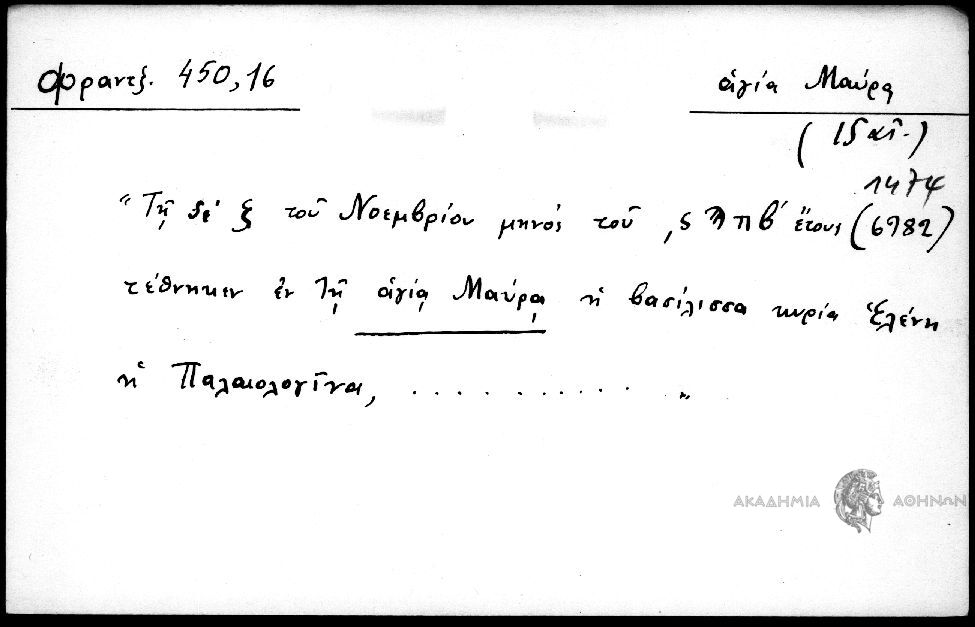 Φραντζ. 450,16
ἁγία Μαύρα
(15 αἰ.)
1474
"Τῇ δὲ ζ τοῦ Νοεμβρίου μηνὸς τοῦ ͵ςϠπβ´ ἔτους (6982)
τέθνηκεν ἐν τῇ ἁγίᾳ Μαύρᾳ ἡ βασίλισσα κυρία Ἑλένη
ἡ Παλαιολογῖνα, . . . . . . . . . . "
ΑΚΑΔΗΜΙΑ ΑΘΗΝΩΝ